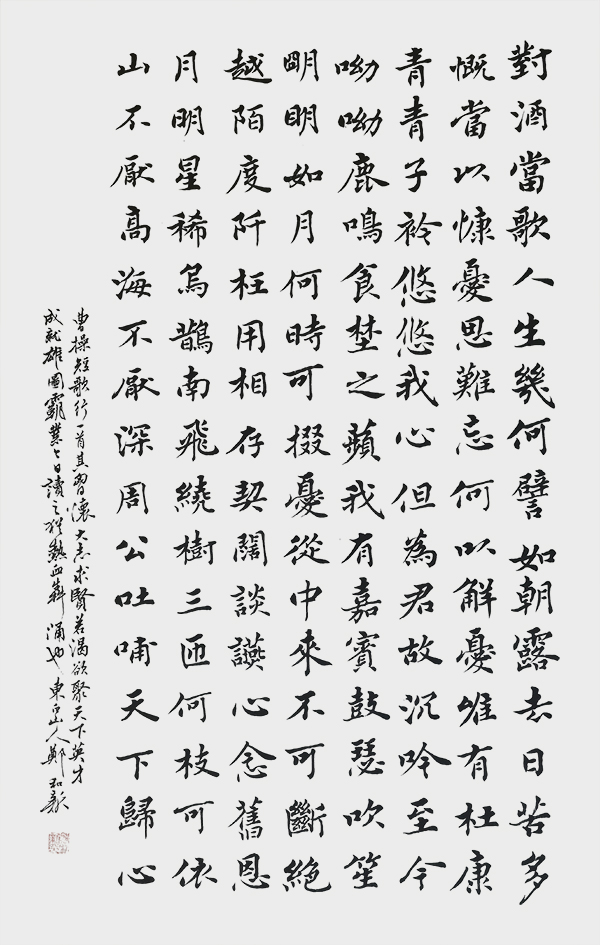 對酒當歌人生幾何譬如朝露去日苦多
慨當以慷憂思難忘何以解憂唯有杜康
青青子衿悠悠我心但為君故沉吟至今
呦呦鹿鳴食埜之蘋我有嘉賓鼓瑟吹笙
明明如月何時可掇憂從中來不可斷絕
越陌度阡枉用相存契闊談讌心念舊恩
月明星稀烏鵲南飛繞樹三匝何枝可依
山不厭高海不厭深周公吐哺天下歸心
曹操短歌行一首其胷懷大志求賢若渴欲聚天下英才
成就雄圖霸業今日讀之猶熱血犇涌也 東山人鄭